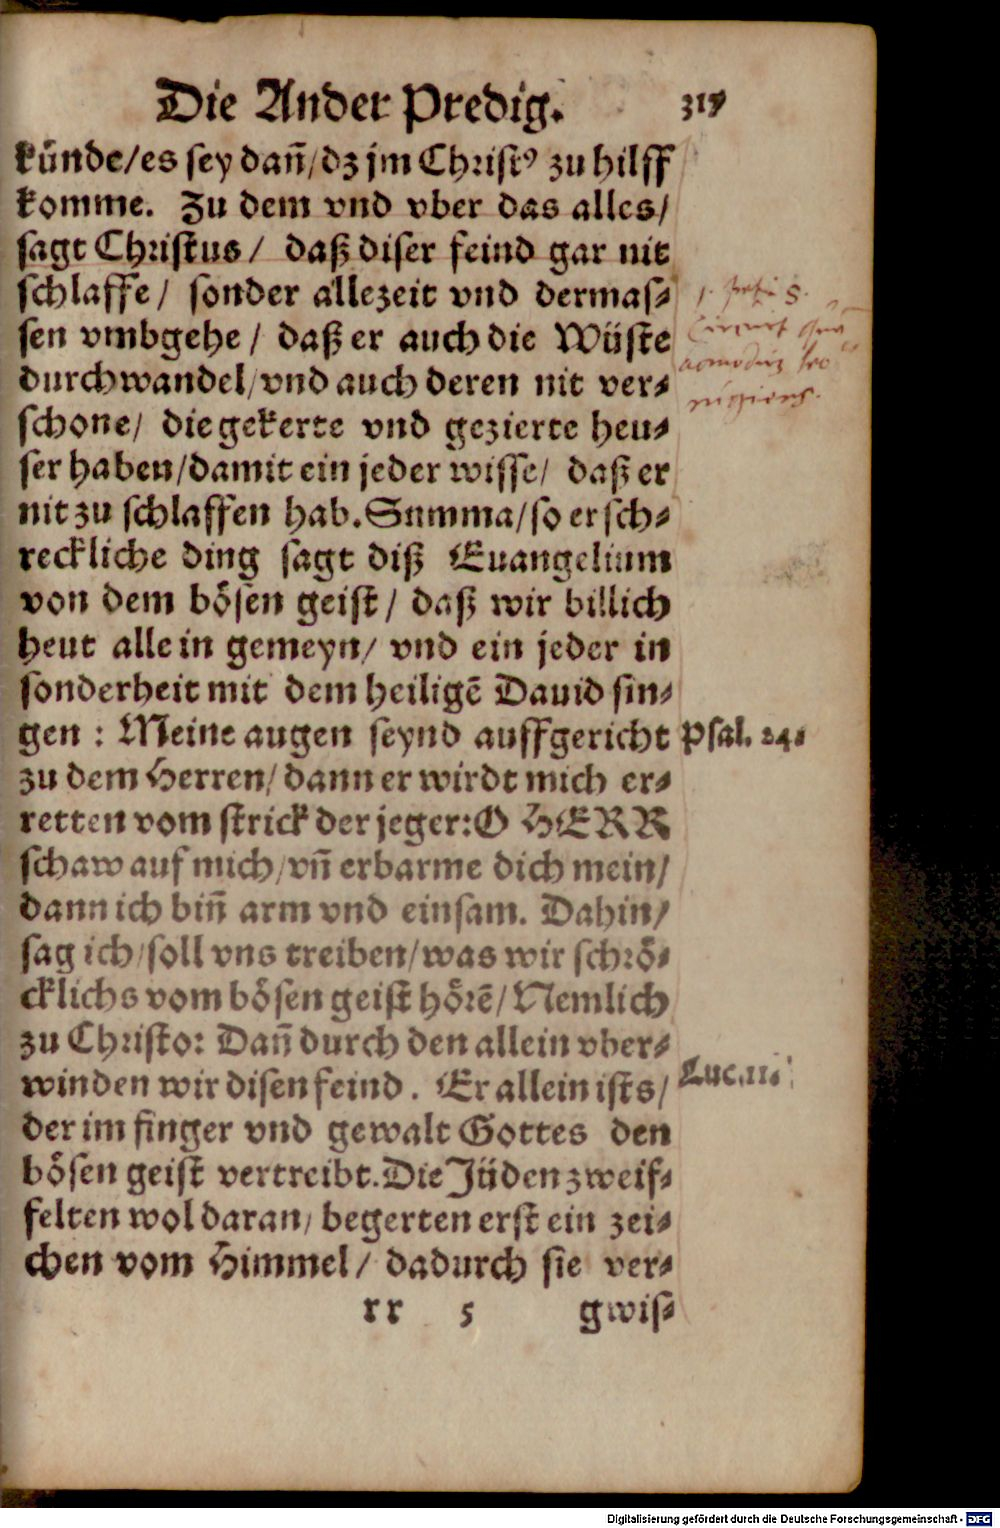 Die Ander Predig. 319
künde/es sey dañ/dz jm Christꝰ zu hilff
komme. Zu dem vnd vber das alles/
sagt Christus/ daß diser feind gar nit
schlaffe/ sonder allezeit vnd dermas⸗
sen vmbgehe/ daß er auch die Wüste
durchwandel/vnd auch deren nit ver⸗
schone/ die gekerte vnd gezierte heu⸗
ser haben/damit ein jeder wisse/ daß er
nit zu schlaffen hab. Summa/so ersch⸗
reckliche ding sagt diß Euangelium
von dem bösen geist/ daß wir billich
heut alle in gemeyn/ vnd ein jeder in
sonderheit mit dem heiligē Dauid sin⸗
gen: Meine augen seynd auffgericht
Psal. 24.
zu dem Herren/dann er wirdt mich er⸗
retten vom strick der jeger: O HERR
schaw auf mich/vñ erbarme dich mein/
dann ich biñ arm vnd einsam. Dahin/
sag ich/soll vns treiben/was wir schrö⸗
cklichs vom bösen geist hörē/Nemlich
zu Christo: Dañ durch den allein vber⸗
winden wir disen feind. Er allein ists/
Luc. 11.
der im finger vnd gewalt Gottes den
bösen geist vertreibt. Die Jüden zweif⸗
felten wol daran/ begerten erst ein zei⸗
chen vom Himmel/ dadurch sie ver⸗
rr 5 gwis⸗
Digitalisierung gefördert durch die Deutsche Forschungsgemeinschaft - DFG